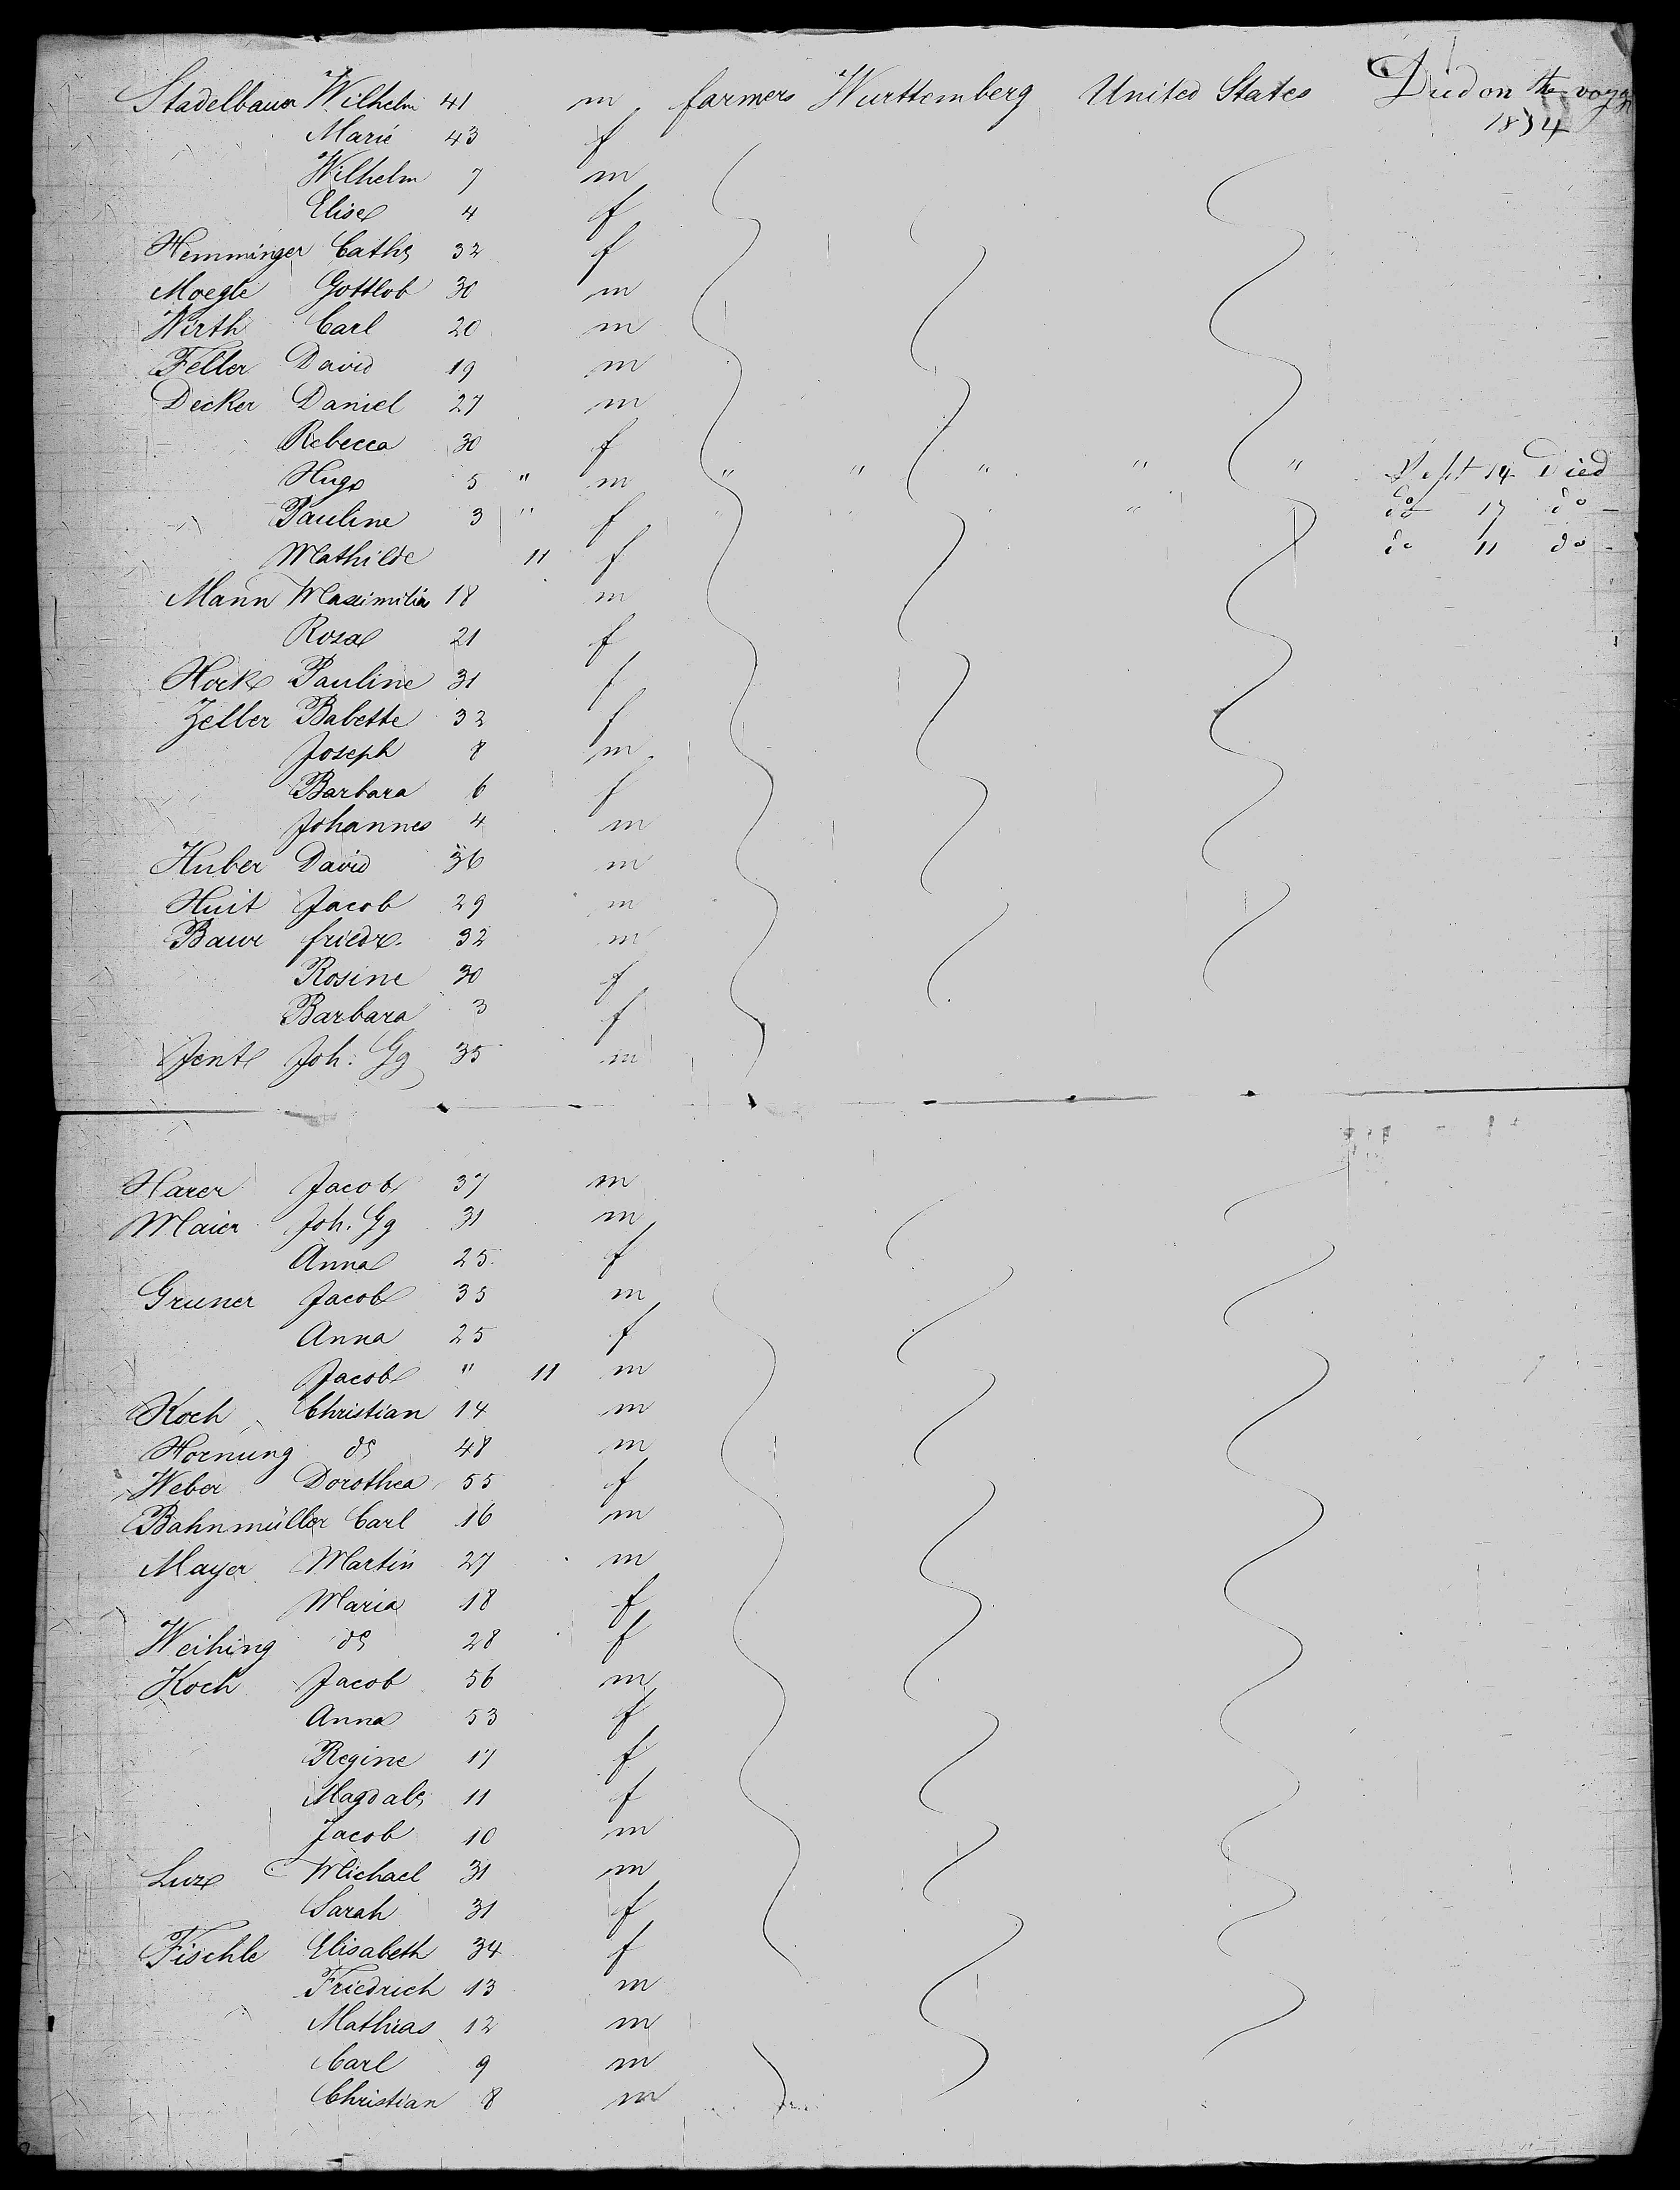 Stadelbauer Wilhelm 41 m farmers Wurttemberg United States Died on the voyage
1854
Marie 43 f
Wilhelm 7 m
Elise 4 f
Hemminger Caths 32 f
Moegle Gottlob 30 m
Wirth Carl 20 m
Feller David 19 m
Decker Daniel 27 m
Rebecca 30 f
Hugo 5 " m " " " " " Sept 14 Died
Pauline 3 " f " do 17 do
Mathilde 11 f do 11 do
Mann Maximilia 18 m
Rosa 21 f
Hock Pauline 31 f
Zeller Babette 32 f
Joseph 8 m
Barbara 6 f
Johannes 4 m
Huber David 36 m
Huit Jacob 29 m
Baur friedr. 32 m
Rosine 30 f
Barbara 3 f
Jent Joh. Gg 35 m
Harer Jacob 37 m
Maier Joh. Gg 31 m
Anna 25 f
Gruner Jacob 35 m
Anna 25 f
Jacob " 11 m
Koch Christian 14 m
Hornung do 48 m
Weber Dorothea 55 f
Bahnmüller Carl 16 m
Mayer Martin 27 m
Maria 18 f
Weihing do 28 f
Koch Jacob 56 m
Anna 53 f
Regine 17 f
Magdals 11 f
Jacob 10 m
Luz Michael 31 m
Sarah 31 f
Fischle Elisabeth 34 f
Friedrich 13 m
Mathias 12 m
Carl 9 m
Christian 8 m